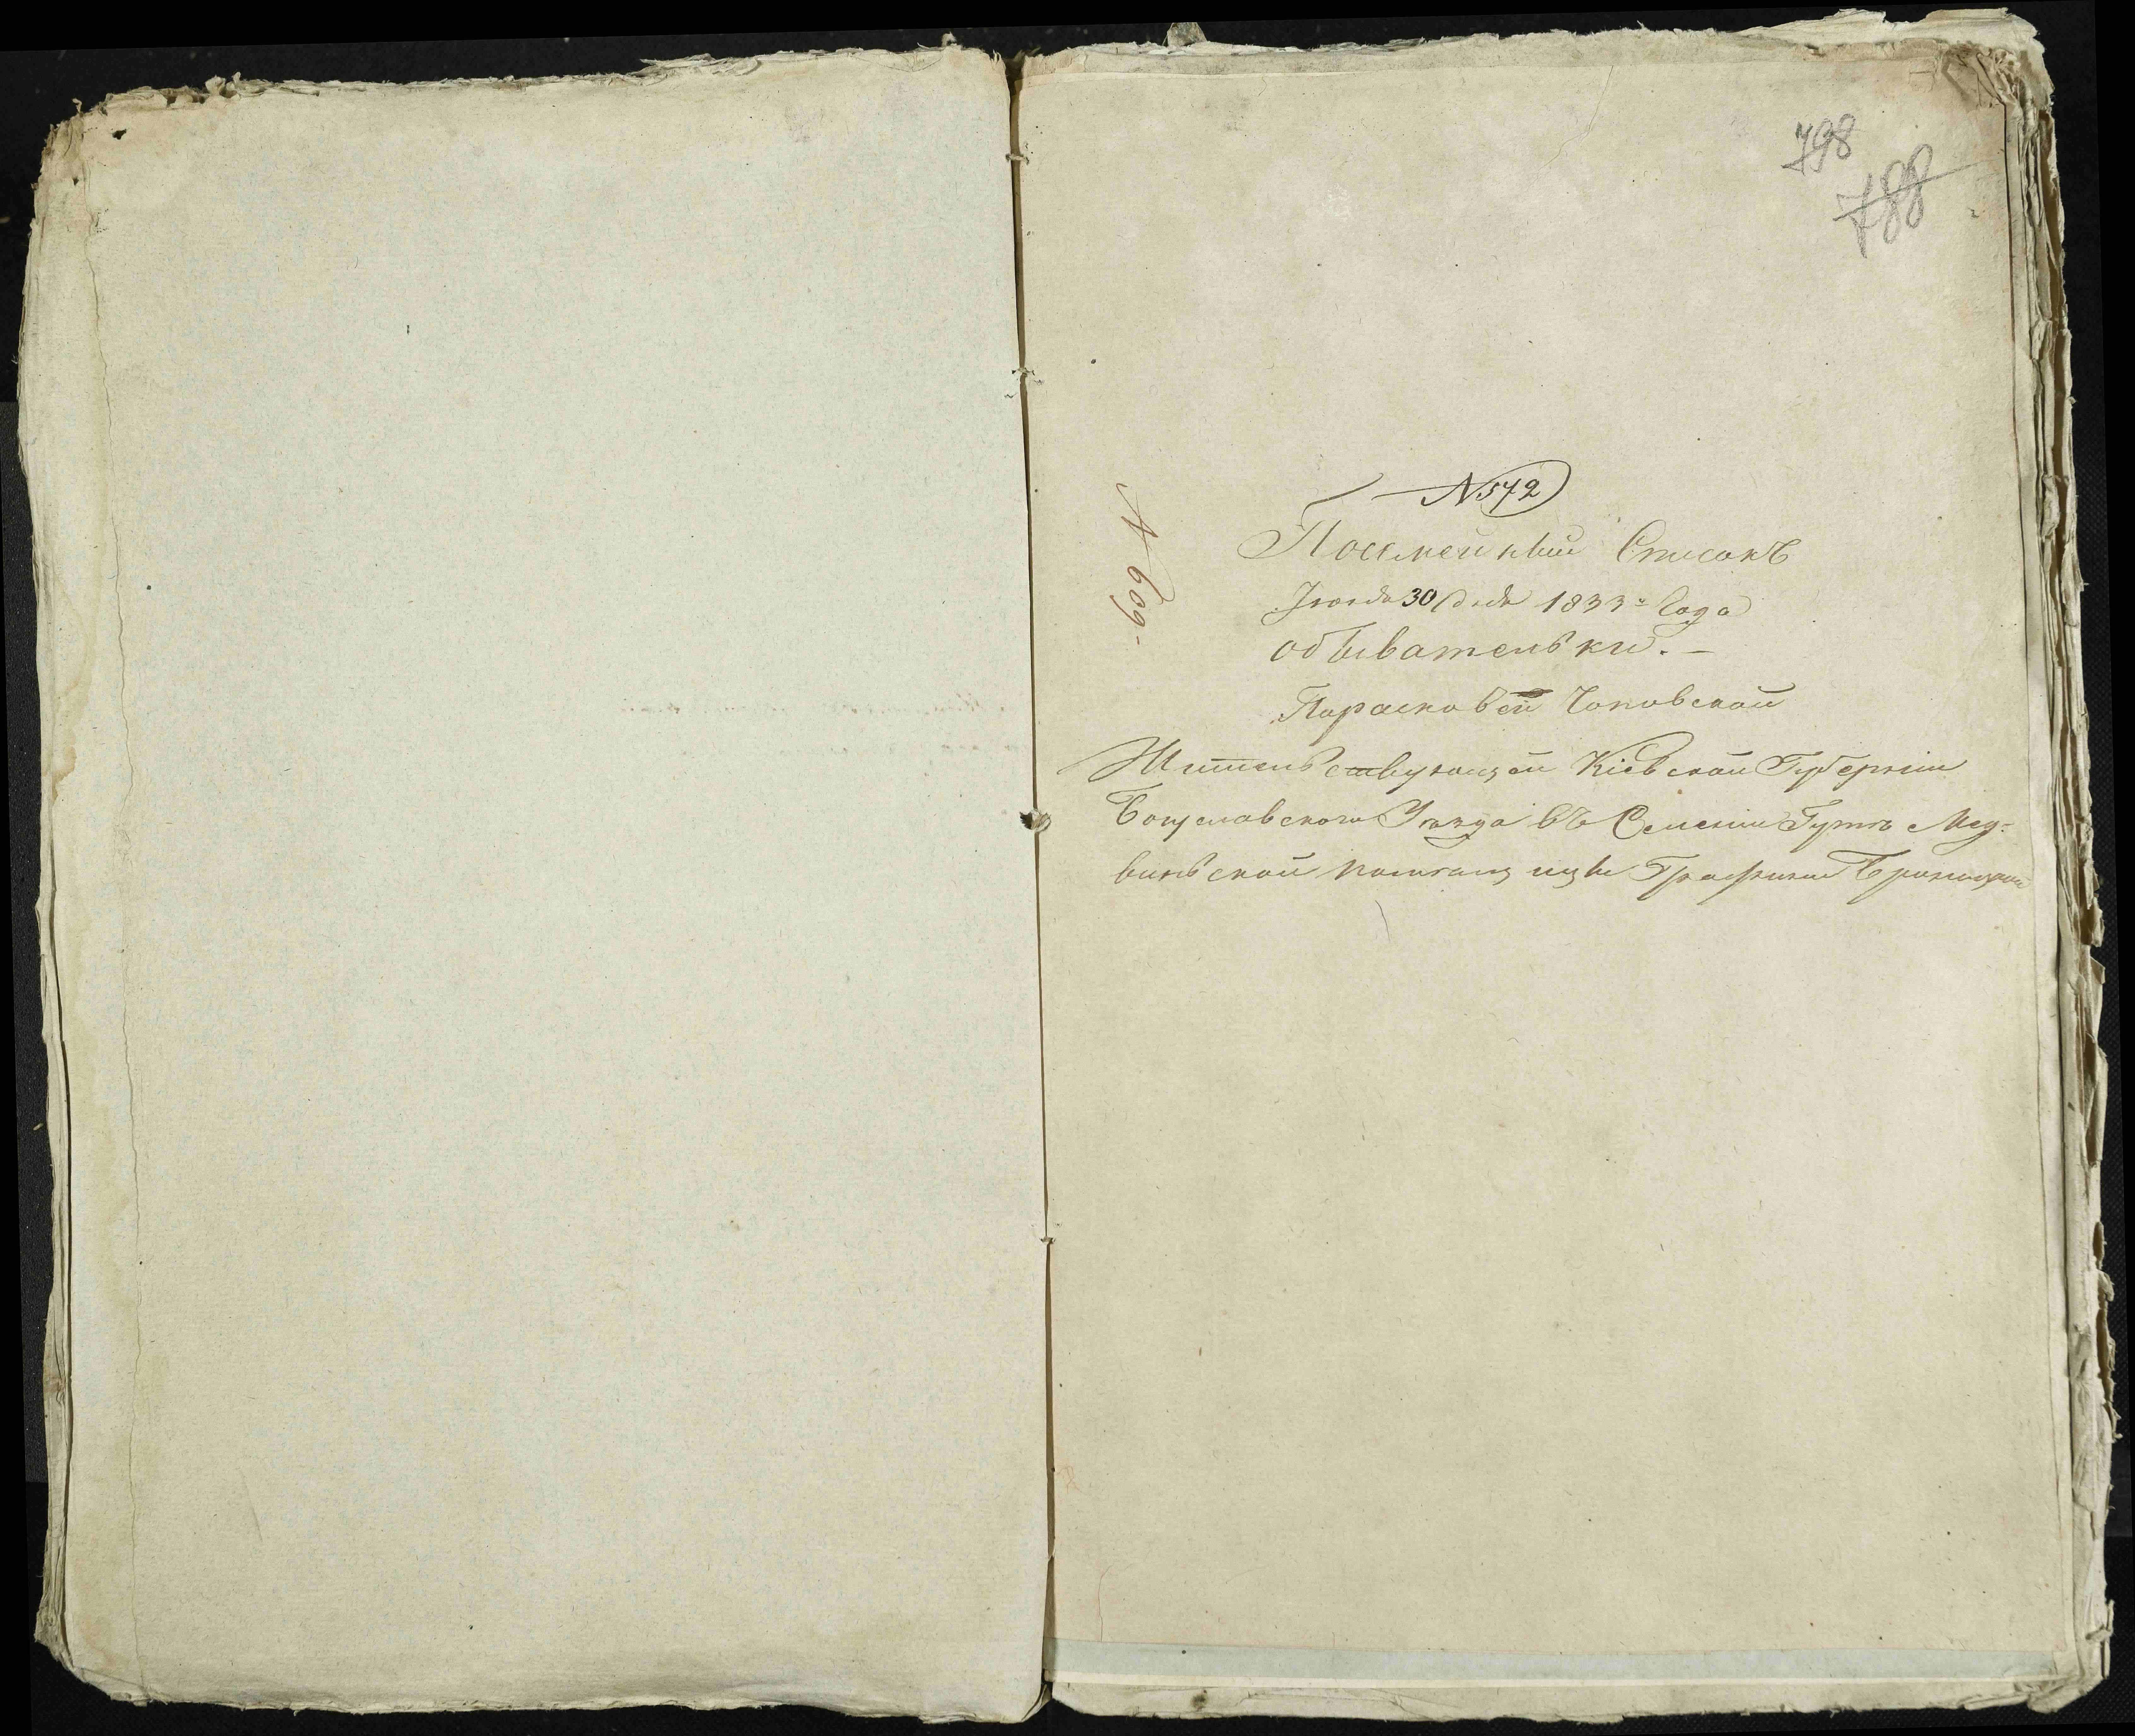 798
788
N 572
N 609.
Посемейный Списокъ
Іюня 30 дня 1833го Года
обывательки. —
Парасковѣй Чоповской
Жительствующей Кіевской Губерніи
Богуславского Уѣзда въ Селеніи Гутѣ Мед-
виньской помѣщицы Графини Браницкой